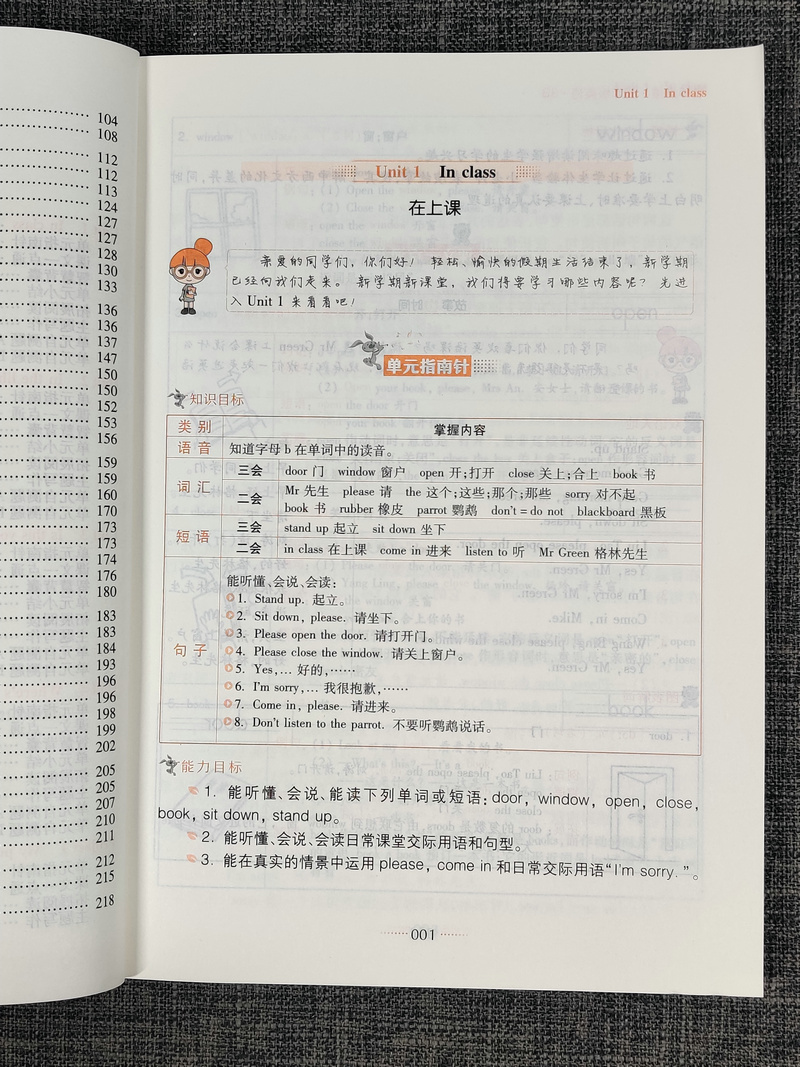 104
108
112
112
113
124
127
127
128
130
133
136
136
137
147
150
150
152
153
156
159
159
160
170
173
173
174
176
180
183
183
184
193
196
196
198
199
202
205
205
207
210
211
212
215
218
Unit 1 In class
Unit 1 In class
在上课
亲爱的同学们，你们好！轻松、愉快的假期生活结束了，新学期
已经向我们走来。新学期新课堂，我们将要学习哪些内容呢？先进
入 Unit 1 来看看吧！
单元指南针
知识目标
类别 掌握内容
语音 知道字母 b 在单词中的读音。
词汇 三会 door 门 window 窗户 open 开;打开 close 关上;合上 book 书
二会 Mr 先生 please 请 the 这个;这些;那个;那些 sorry 对不起
book 书 rubber 橡皮 parrot 鹦鹉 don't = do not blackboard 黑板
短语 三会 stand up 起立 sit down 坐下
二会 in class 在上课 come in 进来 listen to 听 Mr Green 格林先生
句子 能听懂、会说、会读:
1. Stand up. 起立。
2. Sit down, please. 请坐下。
3. Please open the door. 请打开门。
4. Please close the window. 请关上窗户。
5. Yes,… 好的,……
6. I'm sorry,… 我很抱歉,……
7. Come in, please. 请进来。
8. Don't listen to the parrot. 不要听鹦鹉说话。
能力目标
1. 能听懂、会说、能读下列单词或短语: door, window, open, close,
book, sit down, stand up。
2. 能听懂、会说、会读日常课堂交际用语和句型。
3. 能在真实的情景中运用 please, come in 和日常交际用语“I'm sorry. ”。
001